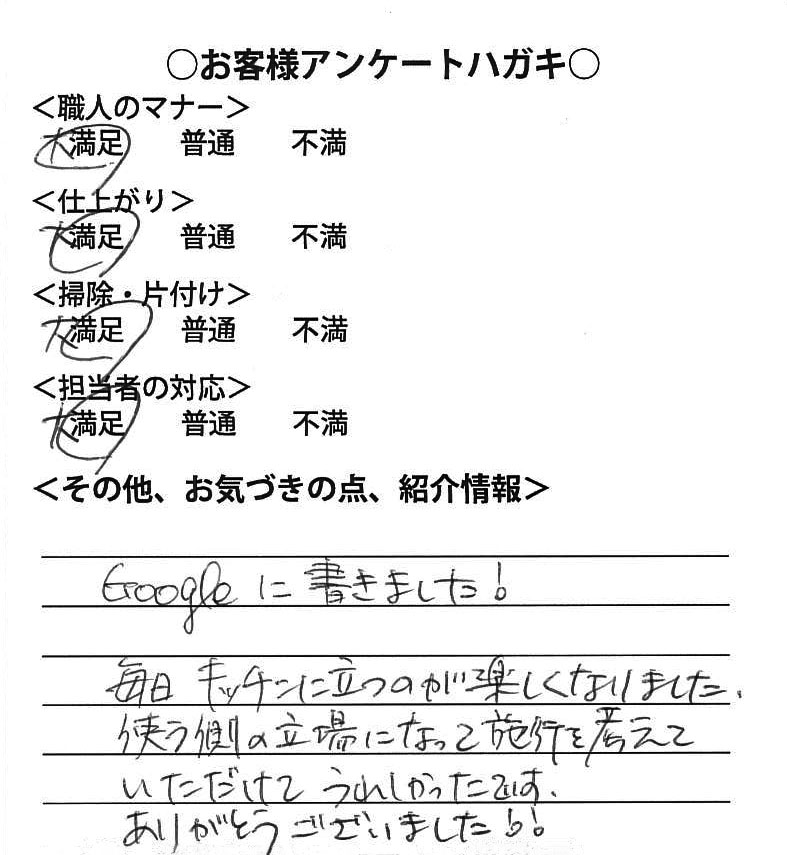 ○お客様アンケートハガキ○
＜職人のマナー＞
大満足 普通 不満
＜仕上がり＞
大満足 普通 不満
＜掃除・片付け＞
大満足 普通 不満
＜担当者の対応＞
大満足 普通 不満
＜その他、お気づきの点、紹介情報＞
Googleに書きました!
毎日キッチンに立つのが楽しくなりました.
使う側の立場になって施行を考えて
いただけてうれしかったです.
ありがとうございました!!